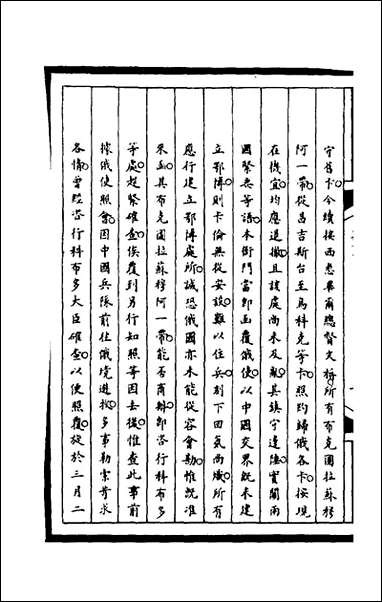 守舊卡今續接西悉畢爾總督文稱所有布克圖拉蘇穆
阿一帶從昌吉斯台至烏科克等卡照約歸俄各卡按現
在機宜均應退撤且該處尚未及亂其鎮守邊陲實關兩
國緊要等語本衙門當即函覆俄使以中國交界既未建
立鄂博則卡倫無從安設難以住兵刻下回氣尚熾所有
應行建立鄂博處所誠恐俄國亦未能從容會勘惟既准
來函其布克圖拉蘇穆阿一帶能否商辦即咨行科布多
等處趕緊確查俟覆到另行知照等因去後惟查此事前
據俄使照會因中國兵隊前往俄境遊牧多事勒索苛求
各情曾經咨行科布多大臣確查以便照覆旋於三月二